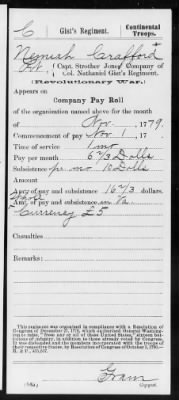 C Gist's Regiment. Continental Troops.
Nemiah Crafford
Pvt., Capt. Strother Jones' Company of
Col. Nathaniel Gist's Regiment.
(Revolutionary War.)
Appears on
Company Pay Roll
of the organization named above for the month
of Nov., 1779.
Commencement of pay Nov 1, 17
Time of service 1 mo
Pay per month 6 2/3 Dolls
Subsistence pr. mo 10 Dolls
Amount
Am't of pay and subsistence 16 2/3 dollars.
Whole Amt. of pay and subsistence in Va.
Currency £5
Casualties
Remarks:
This regiment was organized in compliance with a Resolution of
Congress of December 27, 1776, which authorized General Washing-
ton to raise, "from any or all of these United States," sixteen bat-
talions of infantry, in addition to those already voted by Congress.
It was disbanded and the members incorporated with the troops of
their respective States, by Resolution of Congress of October 3, 1780.—
R. & P., 436,647.
Copyist.